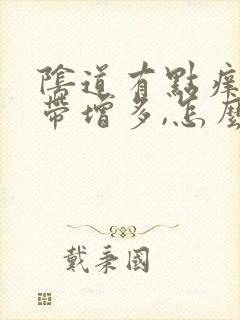 陰道有點癢
帶增多,怎麼
戴秉國